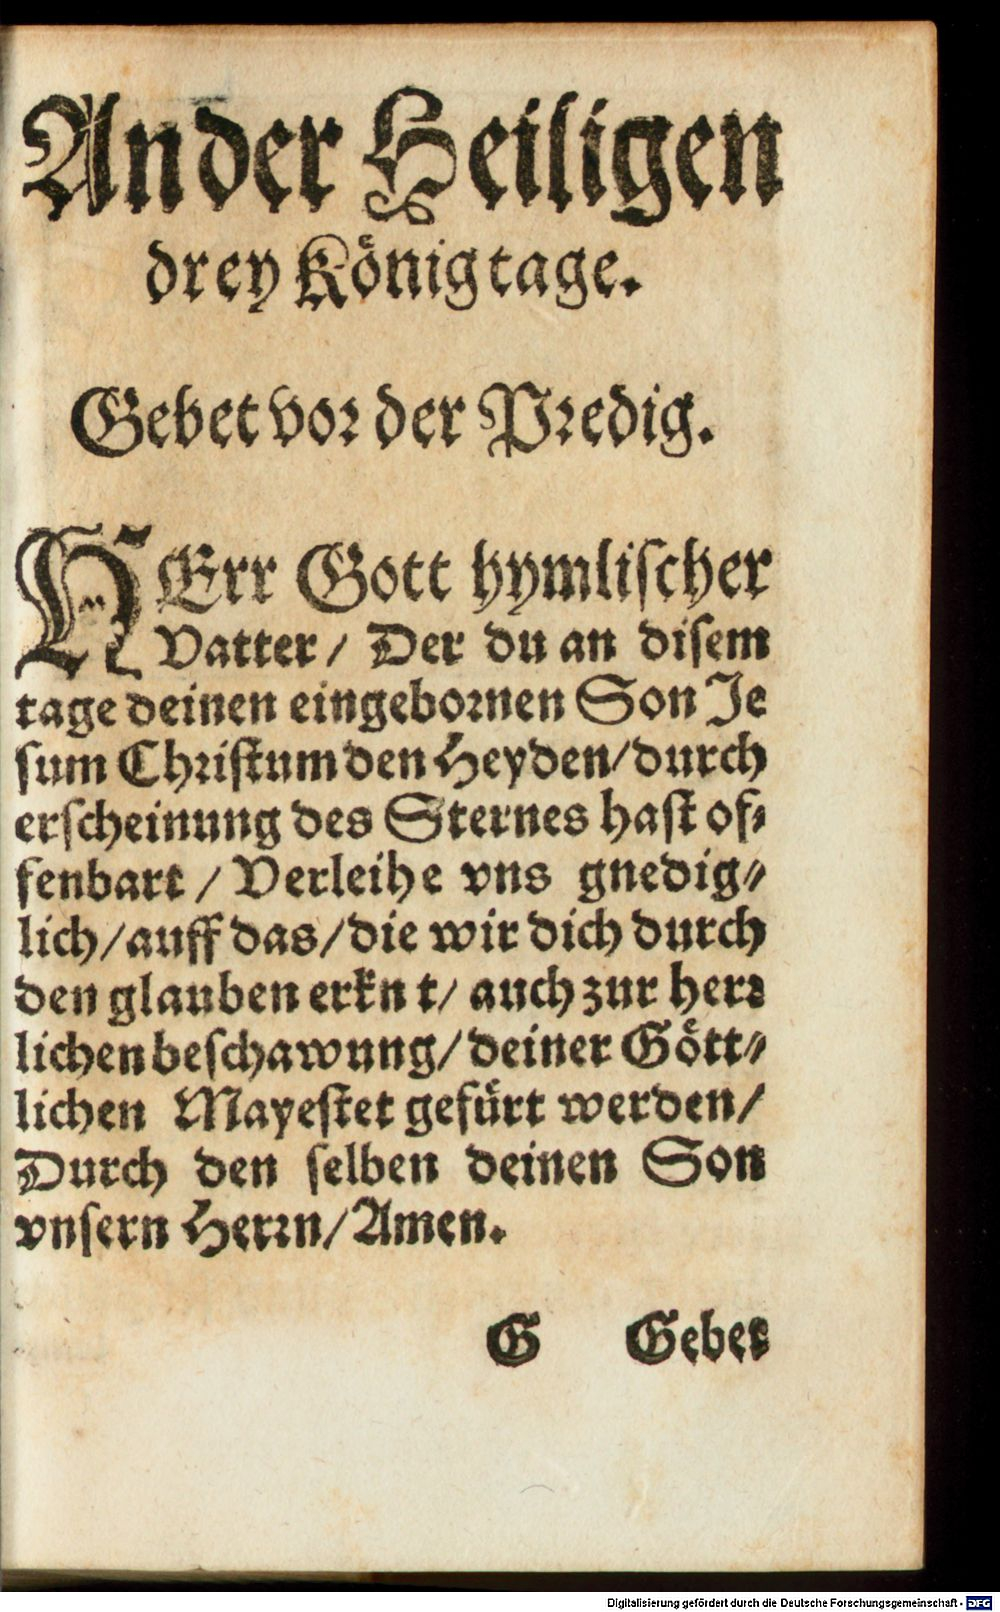 An der Heiligen
drey Königtage.
Gebet vor der Predig.
HErr Gott hymlischer
Vatter / Der du an disem
tage deinen eingebornen Son Je
sum Christum den Heyden / durch
erscheinung des Sternes hast of⸗
fenbart / Verleihe vns gnedig⸗
lich / auff das / die wir dich durch
den glauben erkn t / auch zur herz
lichen beschawung / deiner Gött⸗
lichen Mayestet gefürt werden /
Durch den selben deinen Son
vnsern Herrn / Amen.
G Gebet
Digitalisierung gefördert durch die Deutsche Forschungsgemeinschaft - DFG